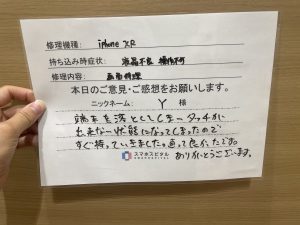 修理機種： iphone XR
持ち込み時症状： 液晶不良 操作不可
修理内容： 画面修理
本日のご意見・ご感想をお願いします。
ニックネーム： Y 様
端末を落としてしまいタッチが
出来ない状態になってしまったので
すぐ持っていきました。直って良かったです。
ありがとうございます。
スマホスピタル
SMAHOSPITAL